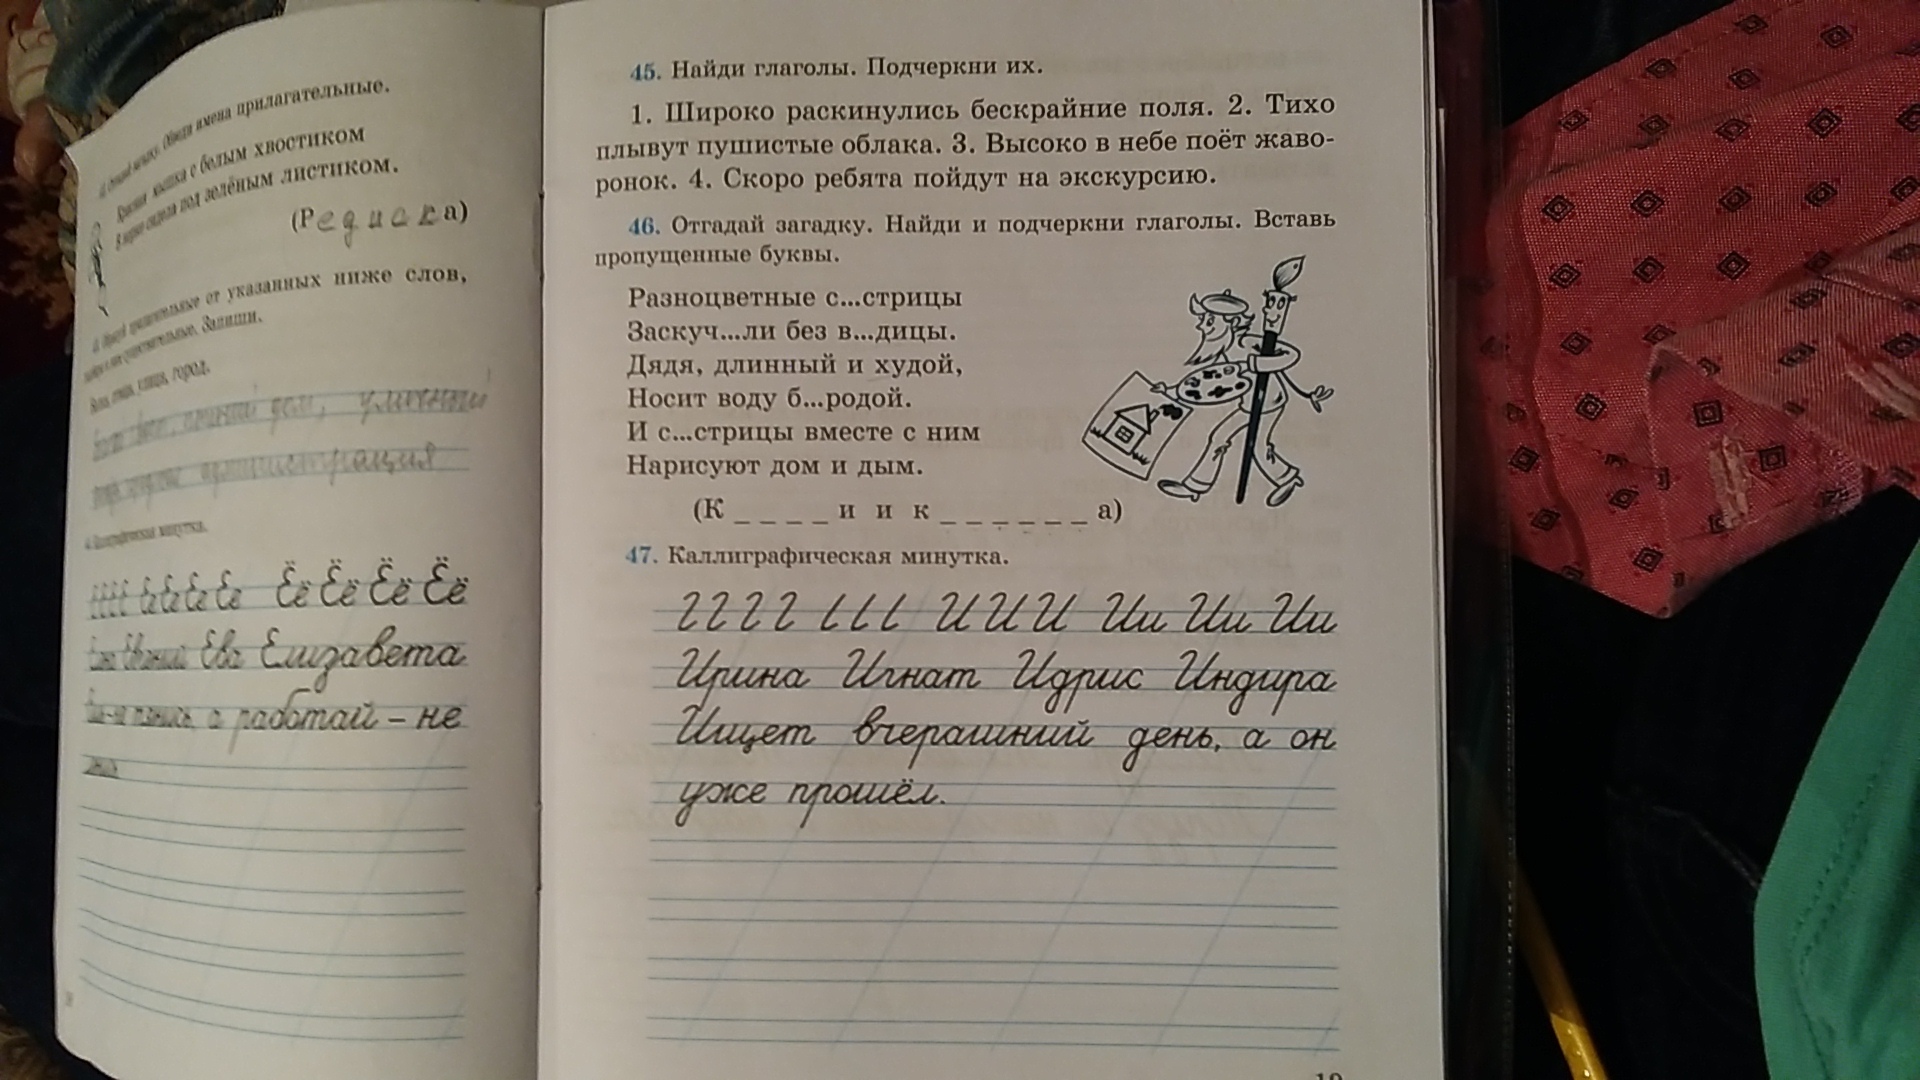 Обведи имена прилагательные.
Красная мышка с белым хвостиком
В норке сидела под зелёным листиком.
(Редиска)
прилагательные от указанных ниже слов,
Запиши.
улица, город.
дом,
администрация
4. Каллиграфическая минутка.
Ее Ее Ее Ее Ёё Ёё Ёё Ёё
Евгений Ева Елизавета
а работай – не
45. Найди глаголы. Подчеркни их.
1. Широко раскинулись бескрайние поля. 2. Тихо
плывут пушистые облака. 3. Высоко в небе поёт жаво-
ронок. 4. Скоро ребята пойдут на экскурсию.
46. Отгадай загадку. Найди и подчеркни глаголы. Вставь
пропущенные буквы.
Разноцветные с...стрицы
Заскуч...ли без в...дицы.
Дядя, длинный и худой,
Носит воду б...родой.
И с...стрицы вместе с ним
Нарисуют дом и дым.
(К _ _ _ _ и и к _ _ _ _ _ _ а)
47. Каллиграфическая минутка.
И И И Ии Ии Ии
Ирина Игнат Идрис Индира
Ищет вчерашний день, а он
уже прошёл.
19